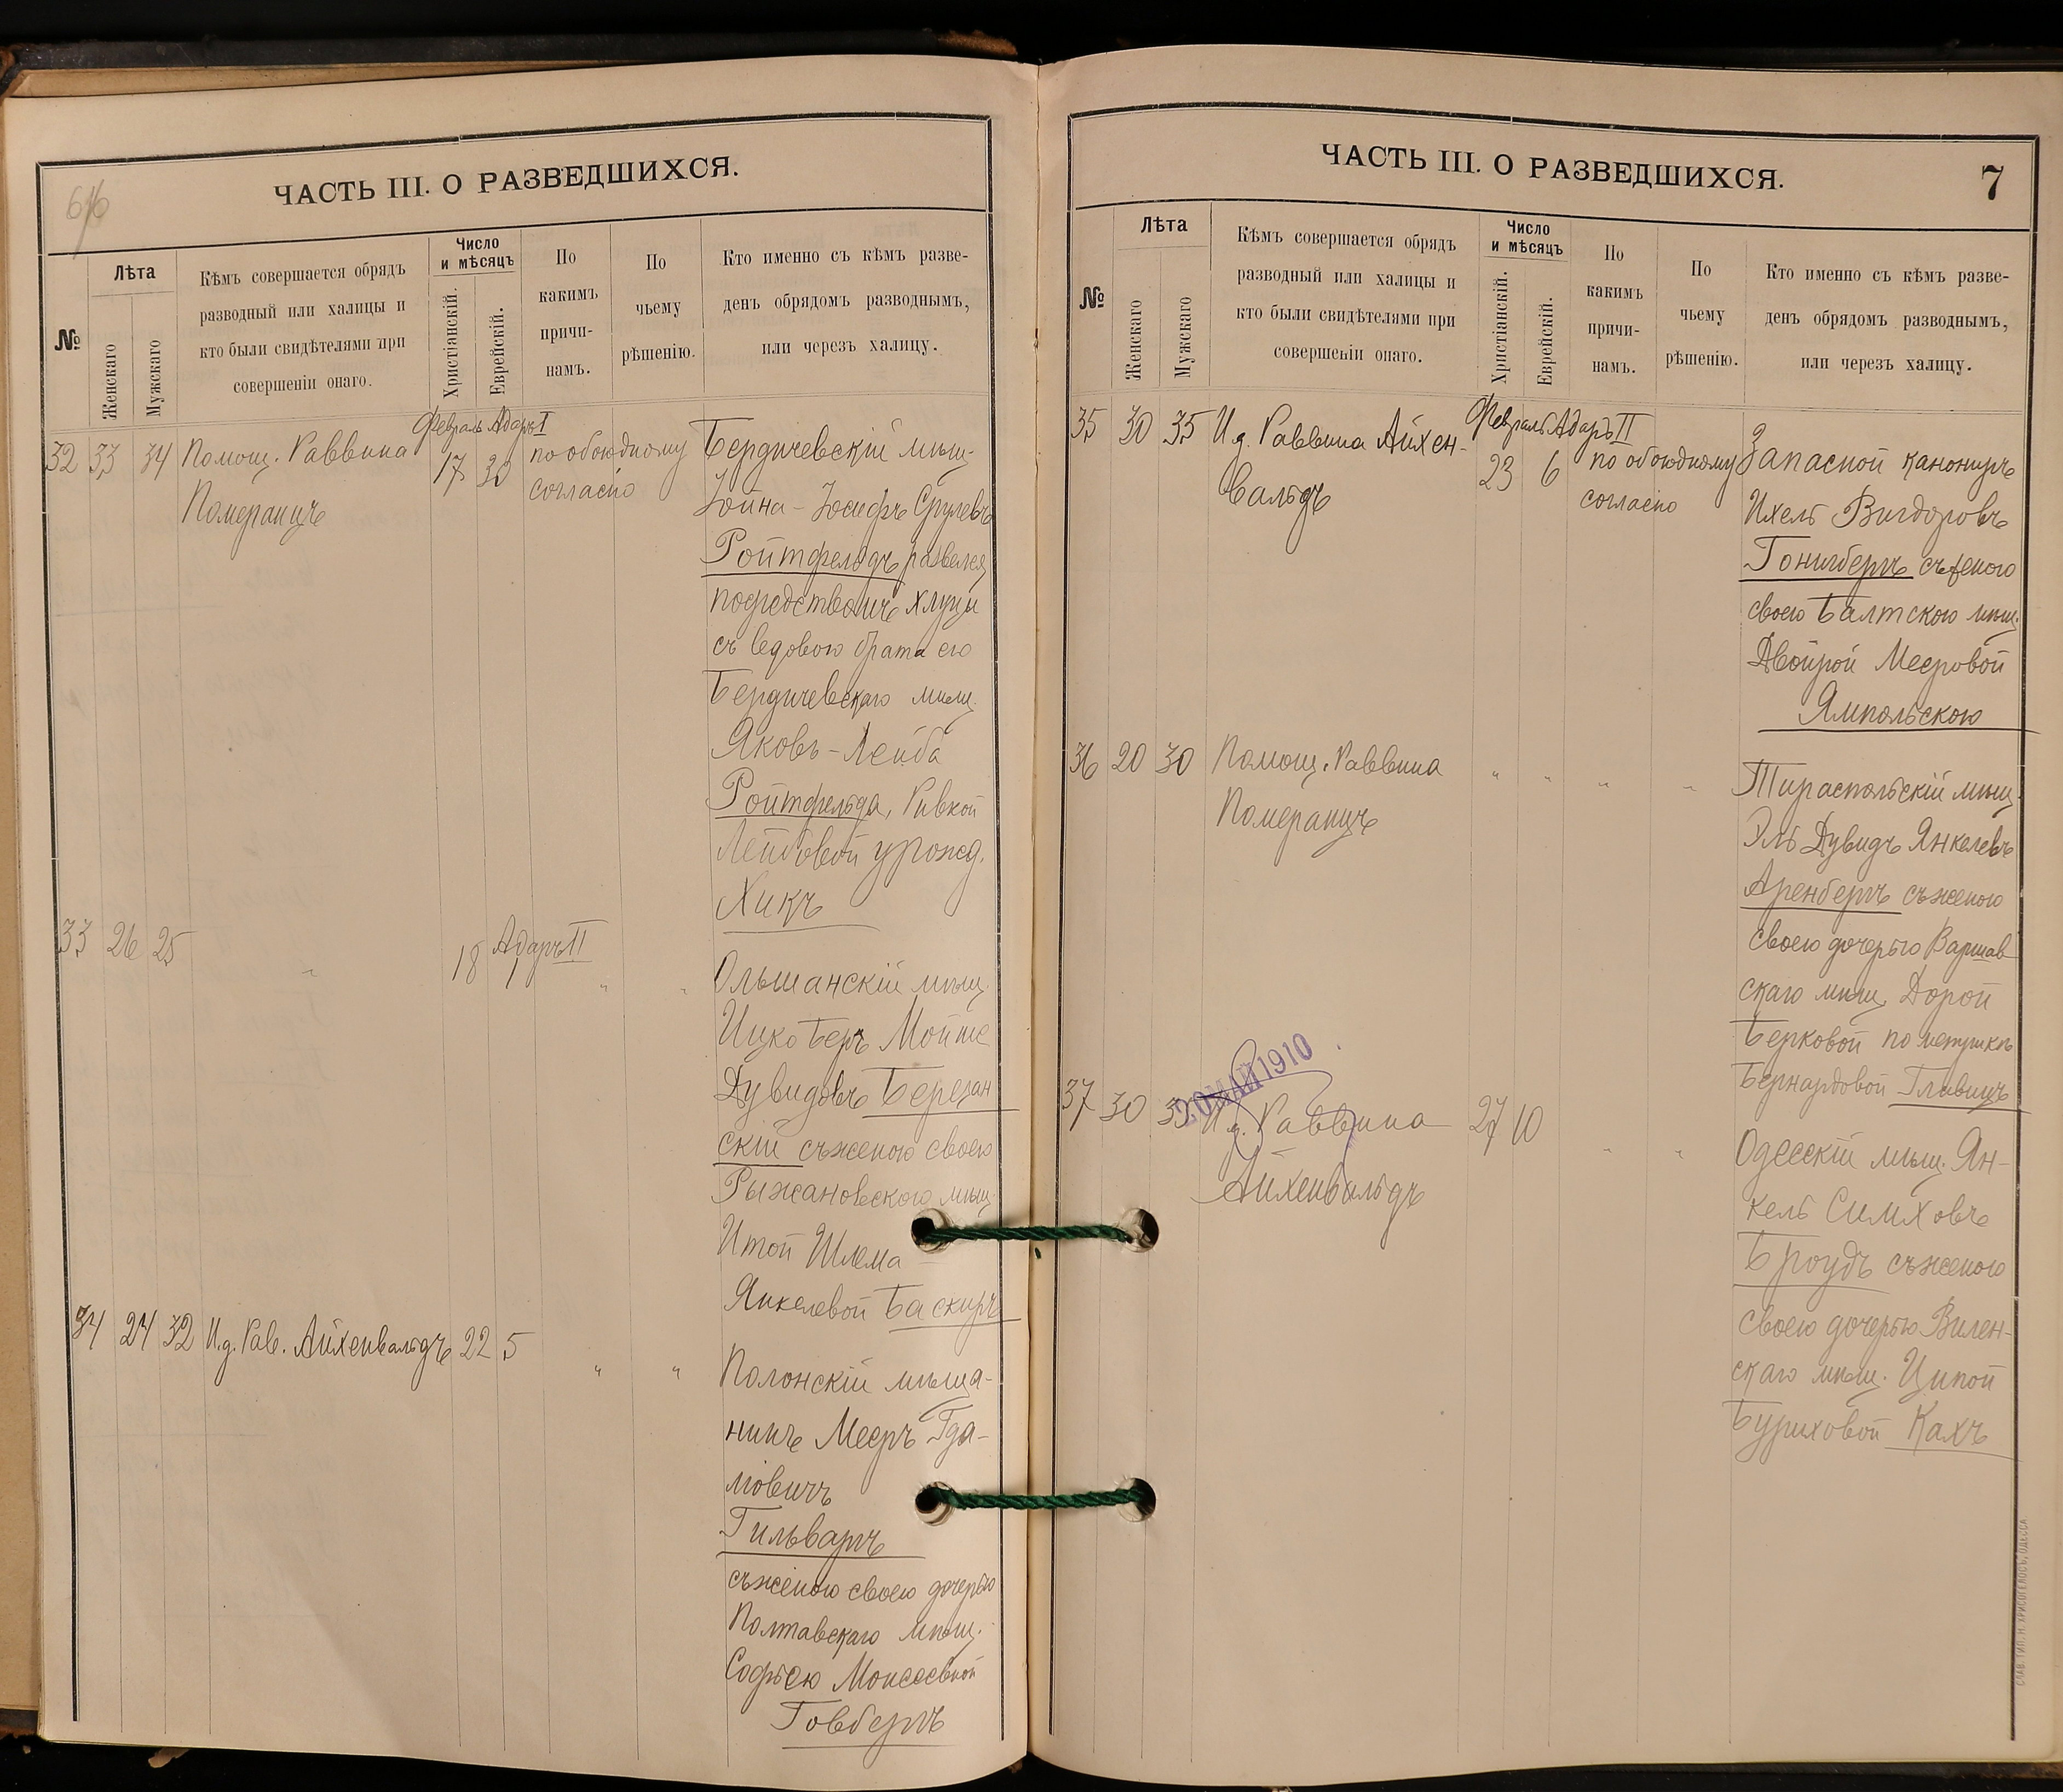 6
ЧАСТЬ III. О РАЗВЕДШИХСЯ.
№
Лѣта
Женскаго
Мужскаго
Кѣмъ совершается обрядъ
разводный или халицы и
кто были свидѣтелями при
совершеніи онаго.
Число
и мѣсяцъ
Христіанскій.
Еврейскій.
По
какимъ
причи-
намъ.
По
чьему
рѣшенію.
Кто именно съ кѣмъ разве-
денъ обрядомъ разводнымъ,
или черезъ халицу.
Февраль Адаръ I
32 33 34 Помощ. Раввина 17 30 по обоюдному
Померанцъ согласію
Бердичевскій мѣщ.
Іойна-Іосифъ Срулевъ
Ройтфельдъ развелся
посредствомъ хлуцы
съ вдовою брата его
Бердичевскаго мѣщ.
Яковъ-Лейба
Ройтфельда, Ривкой
Лейбовой урожд.
Хикъ
33 26 25 " 18 Адаръ II 1 " "
Ольшанскій мѣщ.
Ицко Беръ Мойше
Дувидовъ Березан
скій съ женою своею
Рыжановского мѣщ.
Итой Шлема
Янкелевой Баскиръ
34 24 32 И.д. Рав. Айхенвальдъ 22 5 " "
Полонскій мѣща-
нинъ Мееръ Гда-
ліовичъ
Гильваргъ
съ женою своею дочерью
Полтавскаго мѣщ.
Софіею Моисеевной
Говбергъ
ЧАСТЬ III. О РАЗВЕДШИХСЯ.
7
№
Лѣта
Женскаго
Мужскаго
Кѣмъ совершается обрядъ
разводный или халицы и
кто были свидѣтелями при
совершеніи онаго.
Число
и мѣсяцъ
Христіанскій.
Еврейскій.
По
какимъ
причи-
намъ.
По
чьему
рѣшенію.
Кто именно съ кѣмъ разве-
денъ обрядомъ разводнымъ,
или черезъ халицу.
Февраль Адаръ II
35 30 35 И.д. Раввина Айхен- 23 6 по обоюдному
вальдъ согласію
Запасной канониръ
Ихель Вигдоровъ
Гонигбергъ съ женою
своею Балтскою мѣщ.
Двойрой Мееровой
Ямпольскою
36 20 30 Помощ. Раввина " " " "
Померанцъ
Тираспольскій мѣщ.
Эль Дувидъ Янкелевъ
Аренбергъ съ женою
своею дочерью Варшав
скаго мѣщ. Дорой
Берковой по метрикѣ
Бернардовой Гливицъ
20 МАЙ 1910
37 30 35 И.д. Раввина 27 10 " "
Айхенвальдъ
Одесскій мѣщ. Ян-
кель Симховъ
Броудъ съ женою
своею дочерью Вилен-
скаго мѣщ. Ципой
Буриховой Кахъ
СЛАВ. ТИП. Н. ХРИСОГЕЛОСЪ, ОДЕССА.